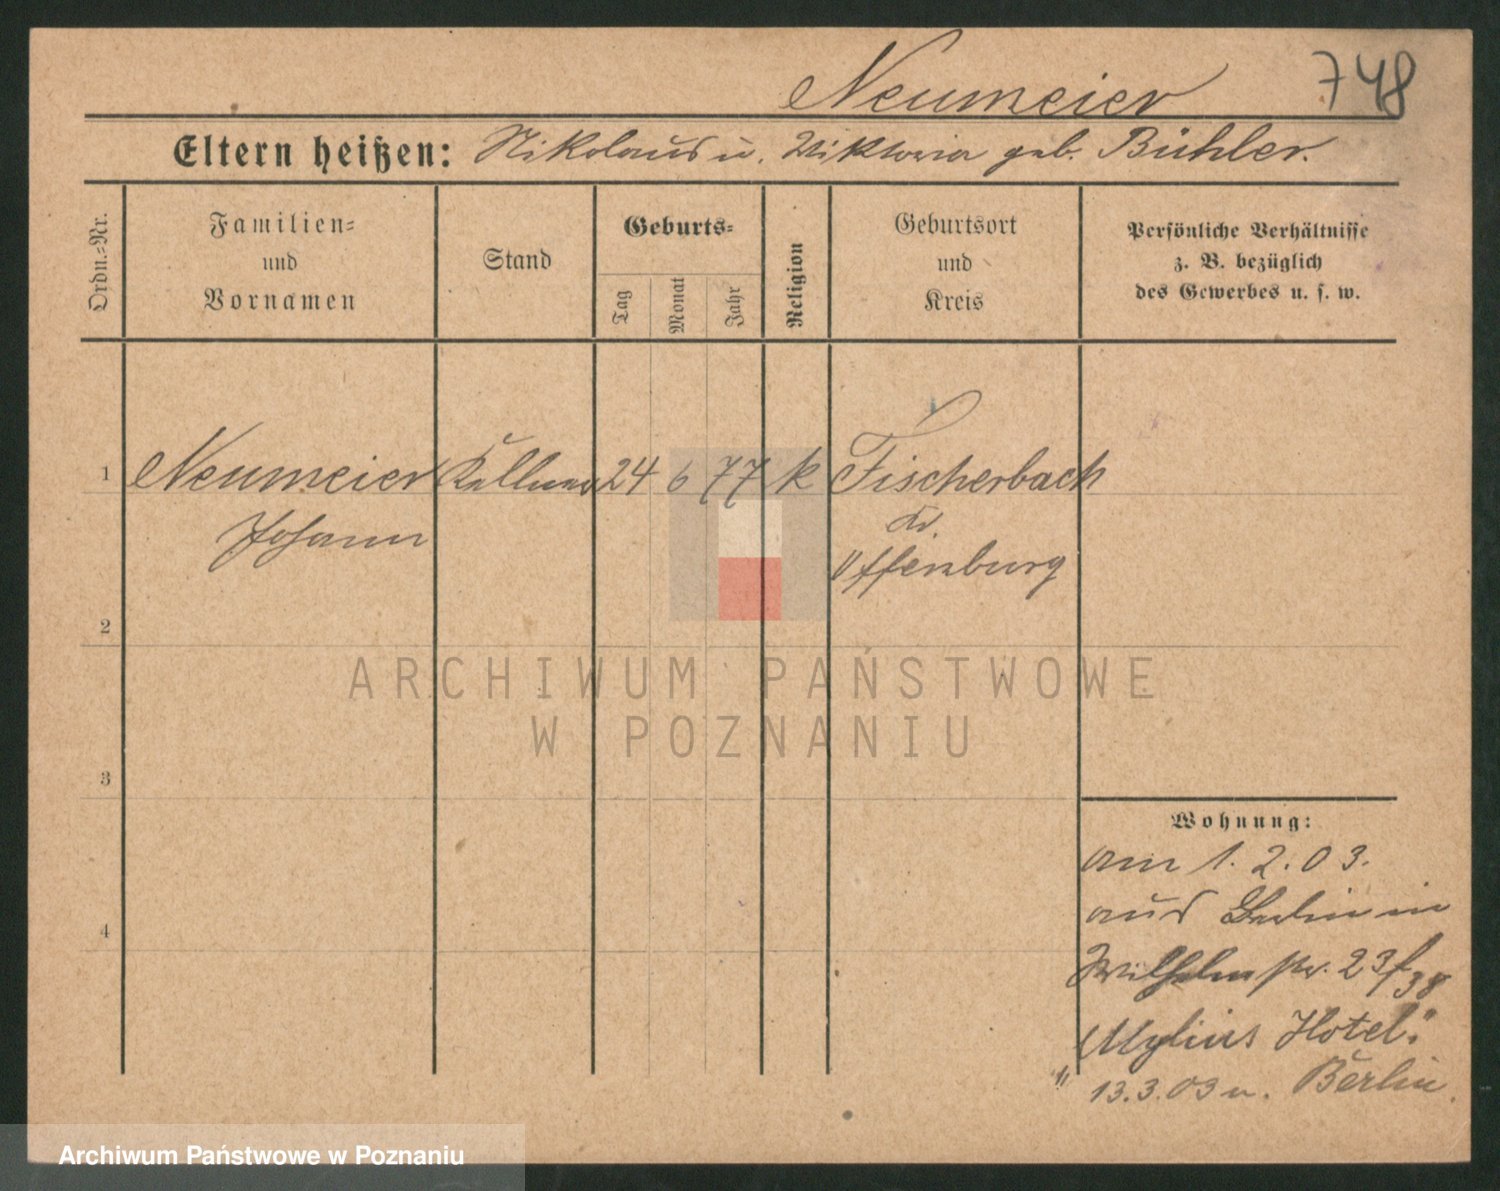 Neumeier
748
Eltern heißen: Nikolaus u. Viktoria geb. Bühler.
Ordn.-Nr.
Familien-
und
Vornamen
Stand
Geburts-
Tag
Monat
Jahr
Religion
Geburtsort
und
Kreis
Persönliche Verhältnisse
z. B. bezüglich
des Gewerbes u. s. w.
1 Neumeier Kellner 24 6 77 k Fischerbach
Johann
Kr.
Offenburg
2
3
4
ARCHIWUM PAŃSTWOWE
W POZNANIU
Wohnung:
am 1. 2. 03.
aus Berlin in
Wilhelmstr. 23/
"Mylius Hotel."
" 13.3.03 n. Berlin.
Archiwum Państwowe w Poznaniu